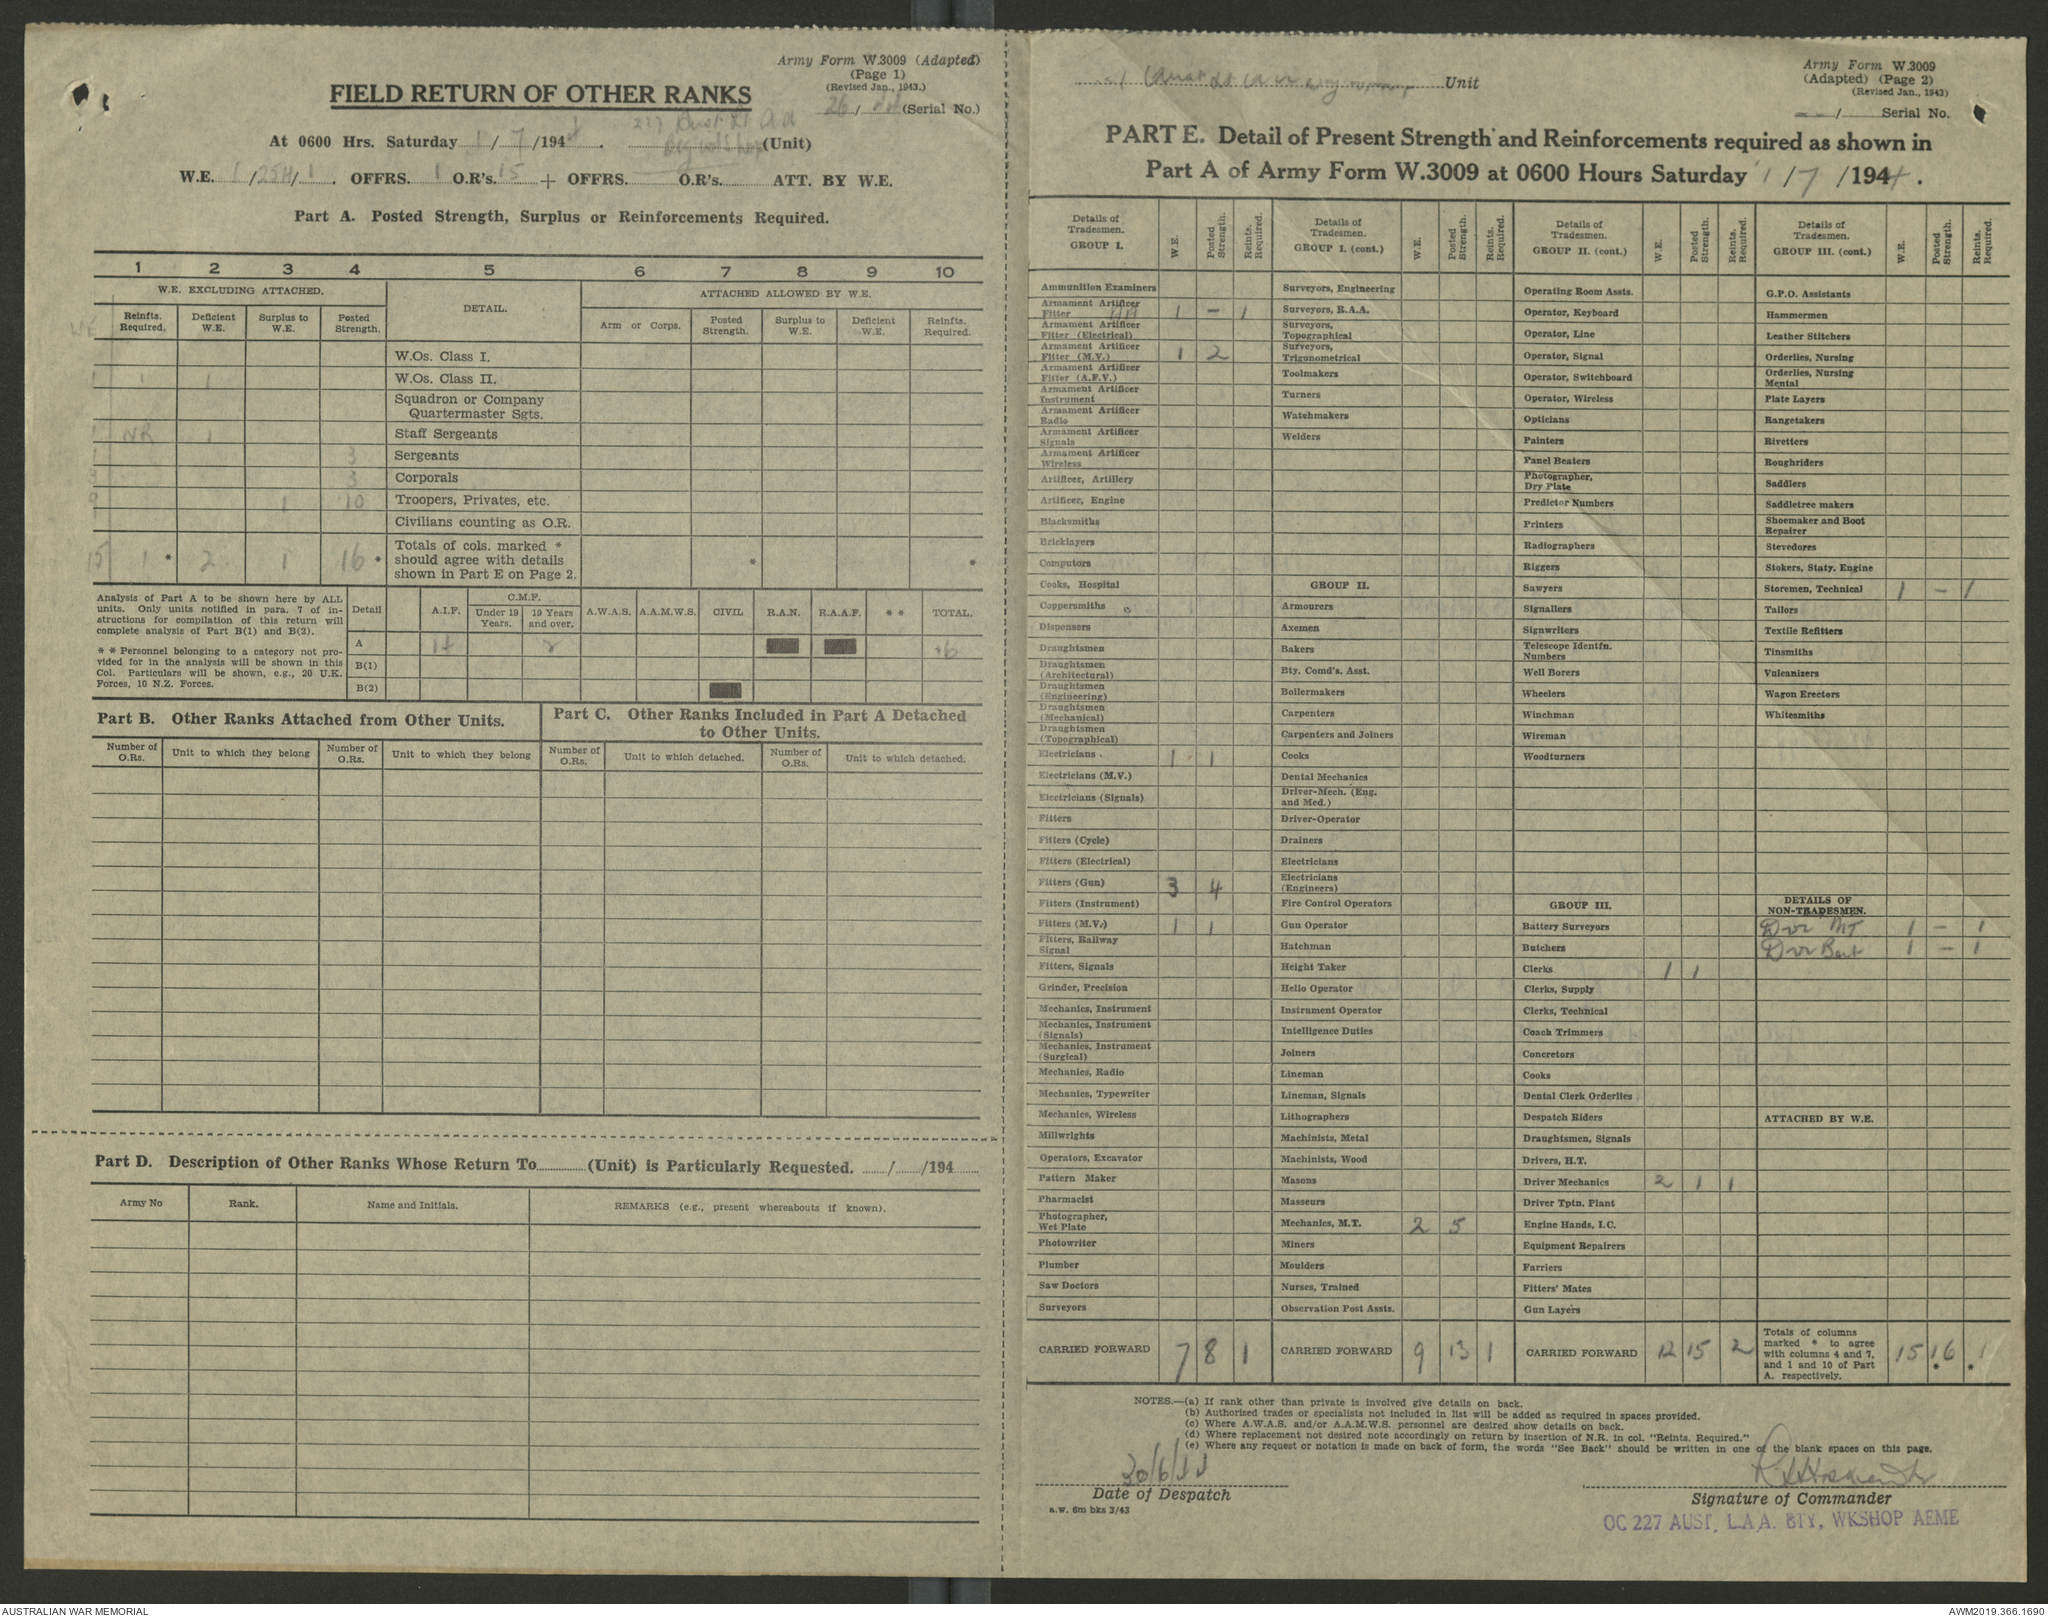 Army Form W.3009 (Adapted)
(Page 1)
(Revised Jan., 1943.)
FIELD RETURN OF OTHER RANKS
26/44 (Serial No.)
At 0600 Hrs. Saturday 1/7/1944. 227 Aust Lt AA
Bty W'shop (Unit)
W.E. 1/254/1. OFFRS. 1 O.R's. 15 + OFFRS. O.R's. ATT. BY W.E.
Part A. Posted Strength, Surplus or Reinforcements Required.
1 2 3 4 5 6 7 8 9 10
W.E. EXCLUDING ATTACHED. DETAIL. ATTACHED ALLOWED BY W.E.
WE Reinfts. Required. Deficient W.E. Surplus to W.E. Posted Strength. Arm or Corps. Posted Strength. Surplus to W.E. Deficient W.E. Reinfts. Required.
W.Os. Class I.
1 1 1 W.Os. Class II.
Squadron or Company
Quartermaster Sgts.
1 NR 1 Staff Sergeants
1 3 Sergeants
3 3 Corporals
9 1 10 Troopers, Privates, etc.
Civilians counting as O.R.
15 1 * 2 1 16 * Totals of cols. marked * * *
should agree with details
shown in Part E on Page 2.
Analysis of Part A to be shown here by ALL
units. Only units notified in para. 7 of in-
structions for compilation of this return will
complete analysis of Part B(1) and B(2).
* * Personnel belonging to a category not pro-
vided for in the analysis will be shown in this
Col. Particulars will be shown, e.g., 20 U.K.
Forces, 10 N.Z. Forces.
Detail A.I.F. C.M.F. Under 19 Years. 19 Years and over. A.W.A.S. A.A.M.W.S. CIVIL R.A.N. R.A.A.F. * * TOTAL.
A 14 2 16
B(1)
B(2)
Part B. Other Ranks Attached from Other Units.
Number of O.Rs. Unit to which they belong Number of O.Rs. Unit to which they belong
Part C. Other Ranks Included in Part A Detached
to Other Units.
Number of O.Rs. Unit to which detached. Number of O.Rs. Unit to which detached.
Part D. Description of Other Ranks Whose Return To (Unit) is Particularly Requested. / /194
Army No Rank. Name and Initials. REMARKS (e.g., present whereabouts if known).
Unit
Army Form W.3009
(Adapted) (Page 2)
(Revised Jan., 1943)
/ Serial No.
PART E. Detail of Present Strength and Reinforcements required as shown in
Part A of Army Form W.3009 at 0600 Hours Saturday 1/7/1944.
Details of Tradesmen. GROUP I. W.E. Posted Strength. Reints. Required.
Ammunition Examiners
Armament Artificer Fitter AA 1 – 1
Armament Artificer Fitter (Electrical)
Armament Artificer Fitter (M.V.) 1 2
Armament Artificer Fitter (A.F.V.)
Armament Artificer Instrument
Armament Artificer Radio
Armament Artificer Signals
Armament Artificer Wireless
Artificer, Artillery
Artificer, Engine
Blacksmiths
Bricklayers
Computors
Cooks, Hospital
Coppersmiths
Dispensers
Draughtsmen
Draughtsmen (Architectural)
Draughtsmen (Engineering)
Draughtsmen (Mechanical)
Draughtsmen (Topographical)
Electricians 1 1
Electricians (M.V.)
Electricians (Signals)
Fitters
Fitters (Cycle)
Fitters (Electrical)
Fitters (Gun) 3 4
Fitters (Instrument)
Fitters (M.V.) 1 1
Fitters, Railway Signal
Fitters, Signals
Grinder, Precision
Mechanics, Instrument
Mechanics, Instrument (Signals)
Mechanics, Instrument (Surgical)
Mechanics, Radio
Mechanics, Typewriter
Mechanics, Wireless
Millwrights
Operators, Excavator
Pattern Maker
Pharmacist
Photographer, Wet Plate
Photowriter
Plumber
Saw Doctors
Surveyors
CARRIED FORWARD 7 8 1
Details of Tradesmen. GROUP I. (cont.) W.E. Posted Strength. Reints. Required.
Surveyors, Engineering
Surveyors, R.A.A.
Surveyors, Topographical
Surveyors, Trigonometrical
Toolmakers
Turners
Watchmakers
Welders
GROUP II.
Armourers
Axemen
Bakers
Bty. Comd's. Asst.
Boilermakers
Carpenters
Carpenters and Joiners
Cooks
Dental Mechanics
Driver-Mech. (Eng. and Med.)
Driver-Operator
Drainers
Electricians
Electricians (Engineers)
Fire Control Operators
Gun Operator
Hatchman
Height Taker
Helio Operator
Instrument Operator
Intelligence Duties
Joiners
Lineman
Lineman, Signals
Lithographers
Machinists, Metal
Machinists, Wood
Masons
Masseurs
Mechanics, M.T. 2 5
Miners
Moulders
Nurses, Trained
Observation Post Assts.
CARRIED FORWARD 9 13 1
Details of Tradesmen. GROUP II. (cont.) W.E. Posted Strength. Reints. Required.
Operating Room Assts.
Operator, Keyboard
Operator, Line
Operator, Signal
Operator, Switchboard
Operator, Wireless
Opticians
Painters
Panel Beaters
Photographer, Dry Plate
Predictor Numbers
Printers
Radiographers
Riggers
Sawyers
Signallers
Signwriters
Telescope Identfn. Numbers
Well Borers
Wheelers
Winchman
Wireman
Woodturners
GROUP III.
Battery Surveyors
Butchers
Clerks 1 1
Clerks, Supply
Clerks, Technical
Coach Trimmers
Concretors
Cooks
Dental Clerk Orderlies
Despatch Riders
Draughtsmen, Signals
Drivers, H.T.
Driver Mechanics 2 1 1
Driver Tptn. Plant
Engine Hands, I.C.
Equipment Repairers
Farriers
Fitters' Mates
Gun Layers
CARRIED FORWARD 12 15 2
Details of Tradesmen. GROUP III. (cont.) W.E. Posted Strength. Reints. Required.
G.P.O. Assistants
Hammermen
Leather Stitchers
Orderlies, Nursing
Orderlies, Nursing Mental
Plate Layers
Rangetakers
Rivetters
Roughriders
Saddlers
Saddletree makers
Shoemaker and Boot Repairer
Stevedores
Stokers, Staty. Engine
Storemen, Technical 1 – 1
Tailors
Textile Refitters
Tinsmiths
Vulcanizers
Wagon Erectors
Whitesmiths
DETAILS OF
NON-TRADESMEN.
Dvr MT 1 – 1
Dvr Bat 1 – 1
ATTACHED BY W.E.
Totals of columns
marked * to agree
with columns 4 and 7,
and 1 and 10 of Part
A. respectively. 15 16 * 1 *
NOTES.—(a) If rank other than private is involved give details on back.
(b) Authorised trades or specialists not included in list will be added as required in spaces provided.
(c) Where A.W.A.S. and/or A.A.M.W.S. personnel are desired show details on back.
(d) Where replacement not desired note accordingly on return by insertion of N.R. in col. "Reints. Required."
(e) Where any request or notation is made on back of form, the words "See Back" should be written in one of the blank spaces on this page.
30/6/44
Date of Despatch
a.w. 6m bks 3/43
Signature of Commander
OC 227 AUST. L.A.A. BTY, WKSHOP AEME
AUSTRALIAN WAR MEMORIAL
AWM2019.366.1690